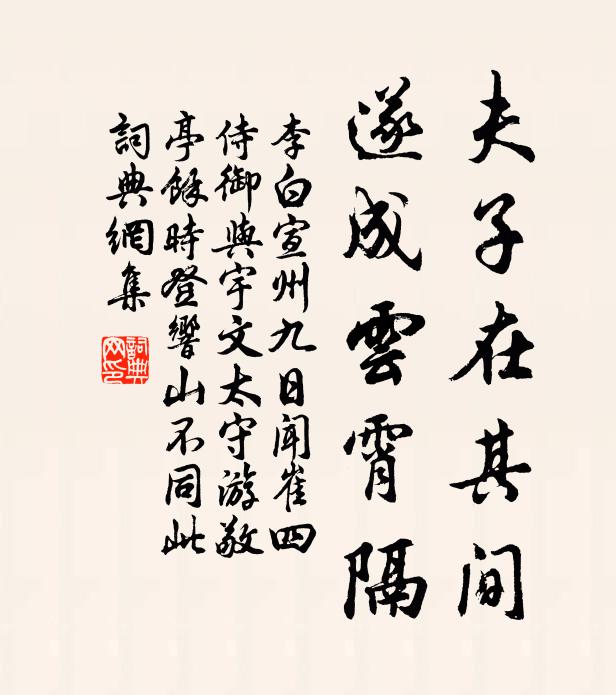 夫子在其间
遂成雲霄隔
李白宣州九日闻崔四
侍御與宇文太守游敬
亭餘時登響山不同此
詞典網集
詞典
网印